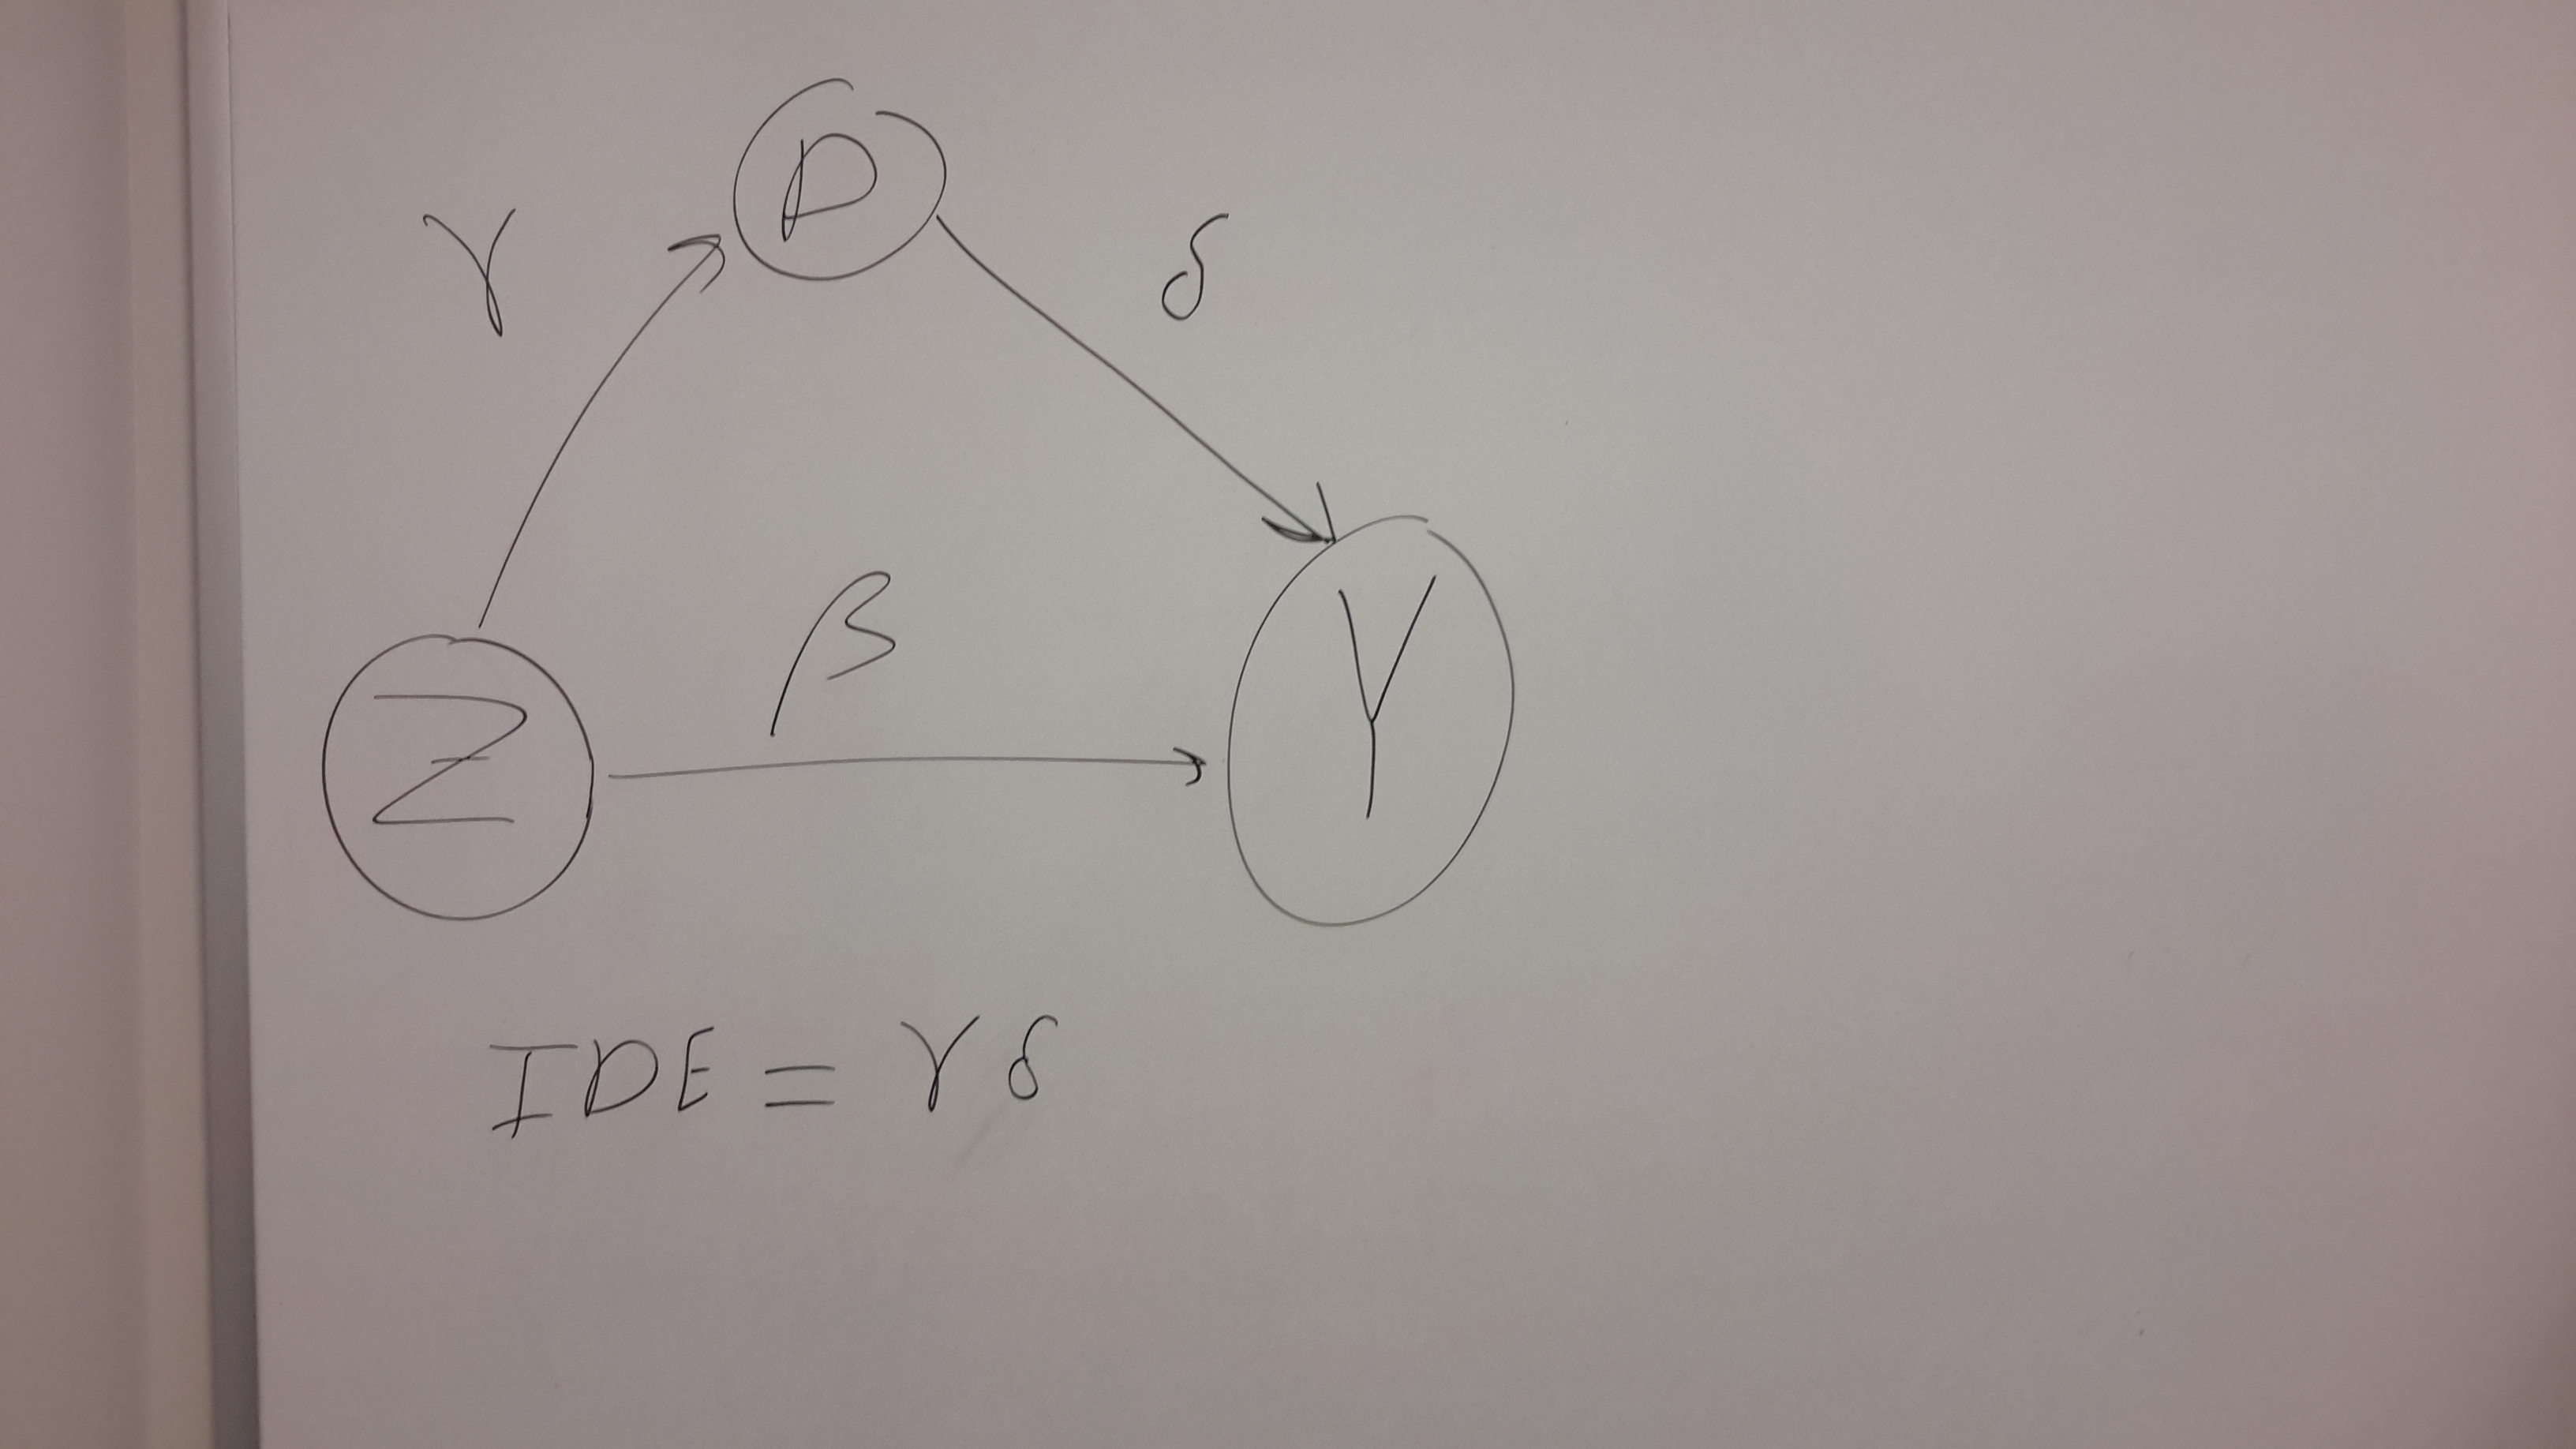 D
γ
δ
β
Z
Y
IDE = γ δ